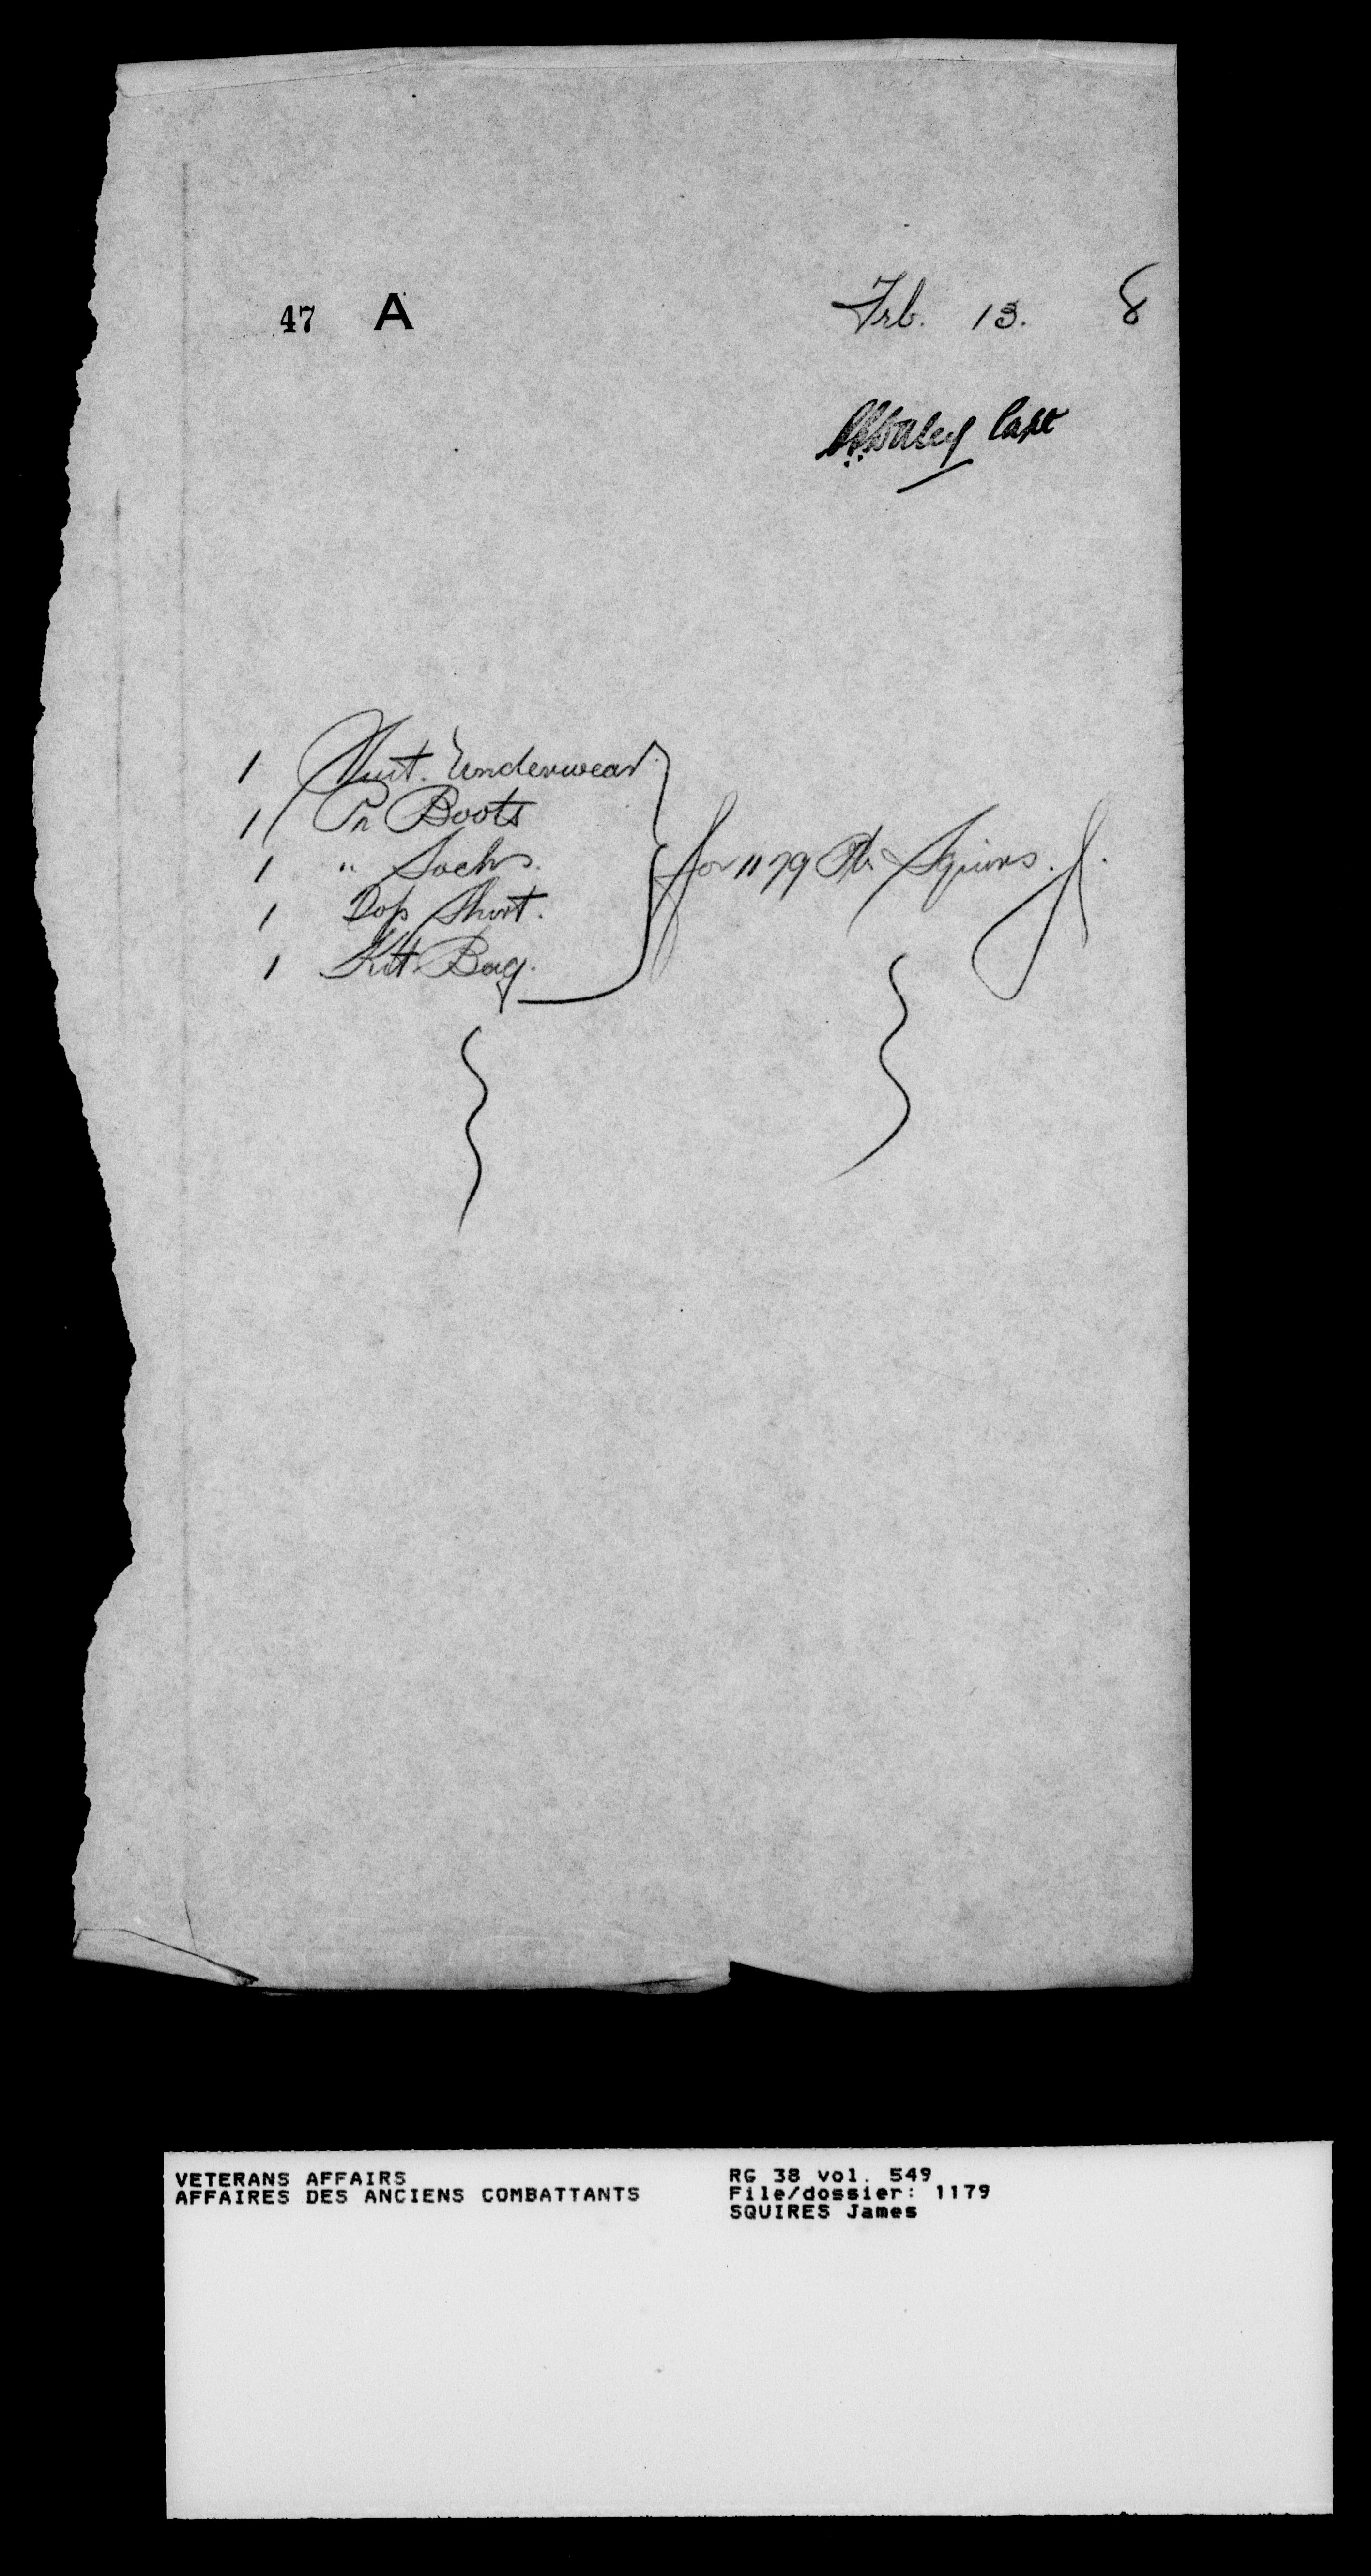 47 A Feb. 13. 8
Capt
1 Suit. Underwear
1 Pr Boots
1 " Socks.
1 Top Shirt.
1 Kit Bag.
for 1179 Pte Squires. J.
VETERANS AFFAIRS
AFFAIRES DES ANCIENS COMBATTANTS
RG 38 vol. 549
File/dossier: 1179
SQUIRES James